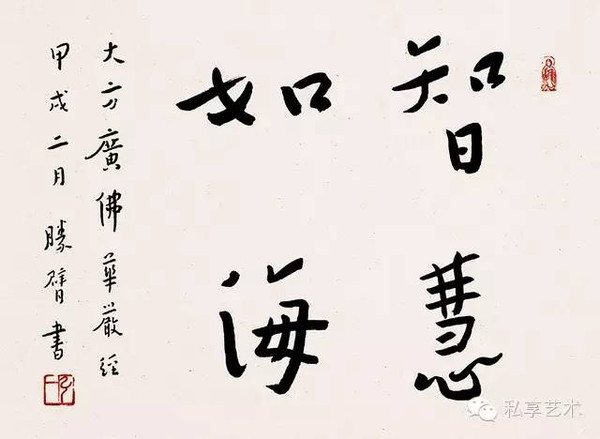 智慧
如海
大方廣佛華嚴經
甲戌二月 勝臂書
私享艺术